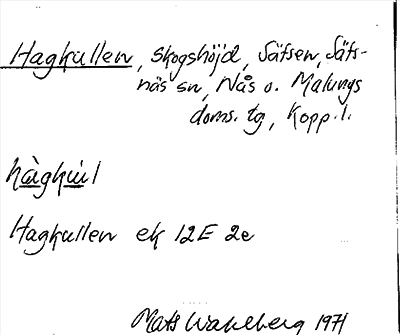 Hagkullen, skogshöjd, Säfsen, Säfs-
näs sn, Nås o. Malungs
doms. tg, Kopp. l.
hàgkùl
Hagkullen ek 12E 2e
Mats Wahlberg 1971